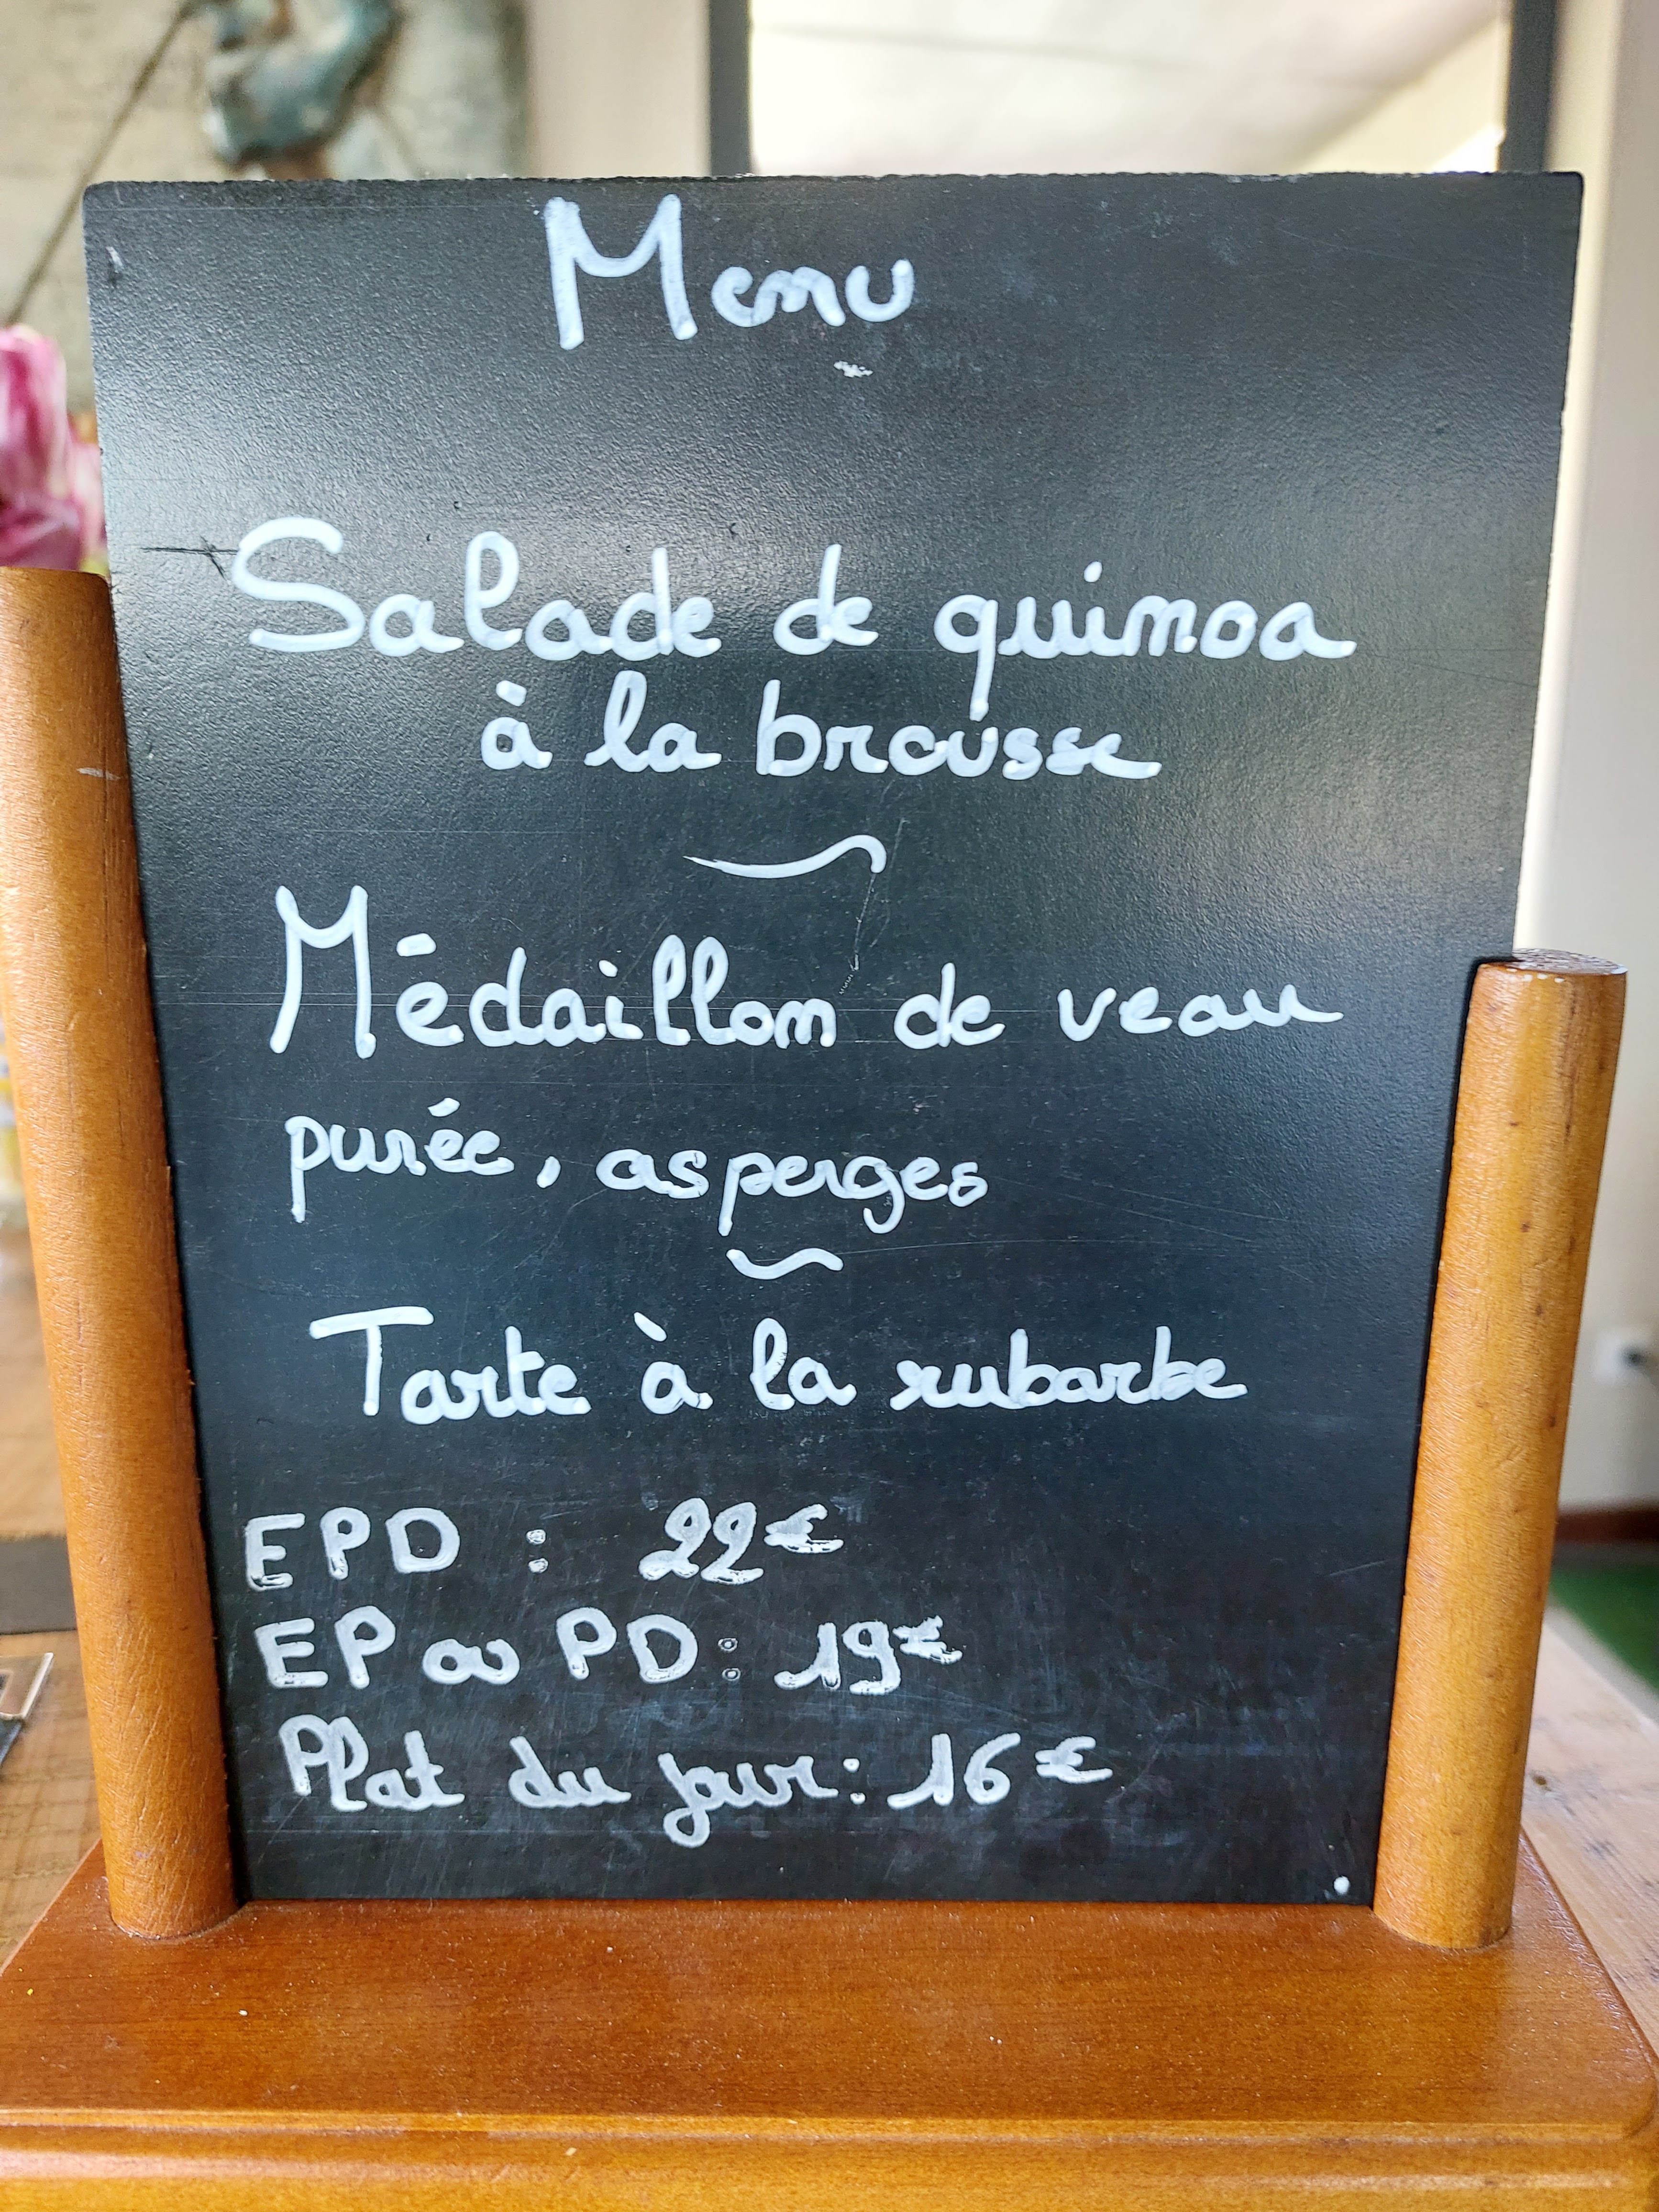 Menu
Salade de quinoa
à la brousse
Médaillon de veau
purée, asperges
Tarte à la rubarbe
EPD : 22€
EP ou PD : 19€
Plat du jour : 16€